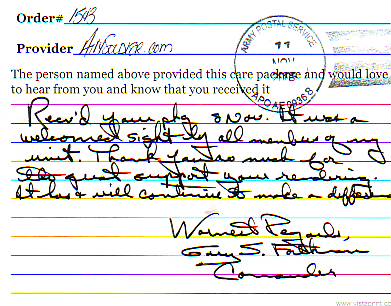 Order# 1543
Provider AnySoldier.com
ARMY POSTAL SERVICE
11
NOV
APO AE 09368
The person named above provided this care package and would love
to hear from you and know that you received it
Recv'd your pkg 8 Nov. It was a
welcomed sight by all members of my
unit. Thank You so much for
the great support your rendering.
It has & will continue to make a difference
Warmest Regards,
Gary S.
Commander